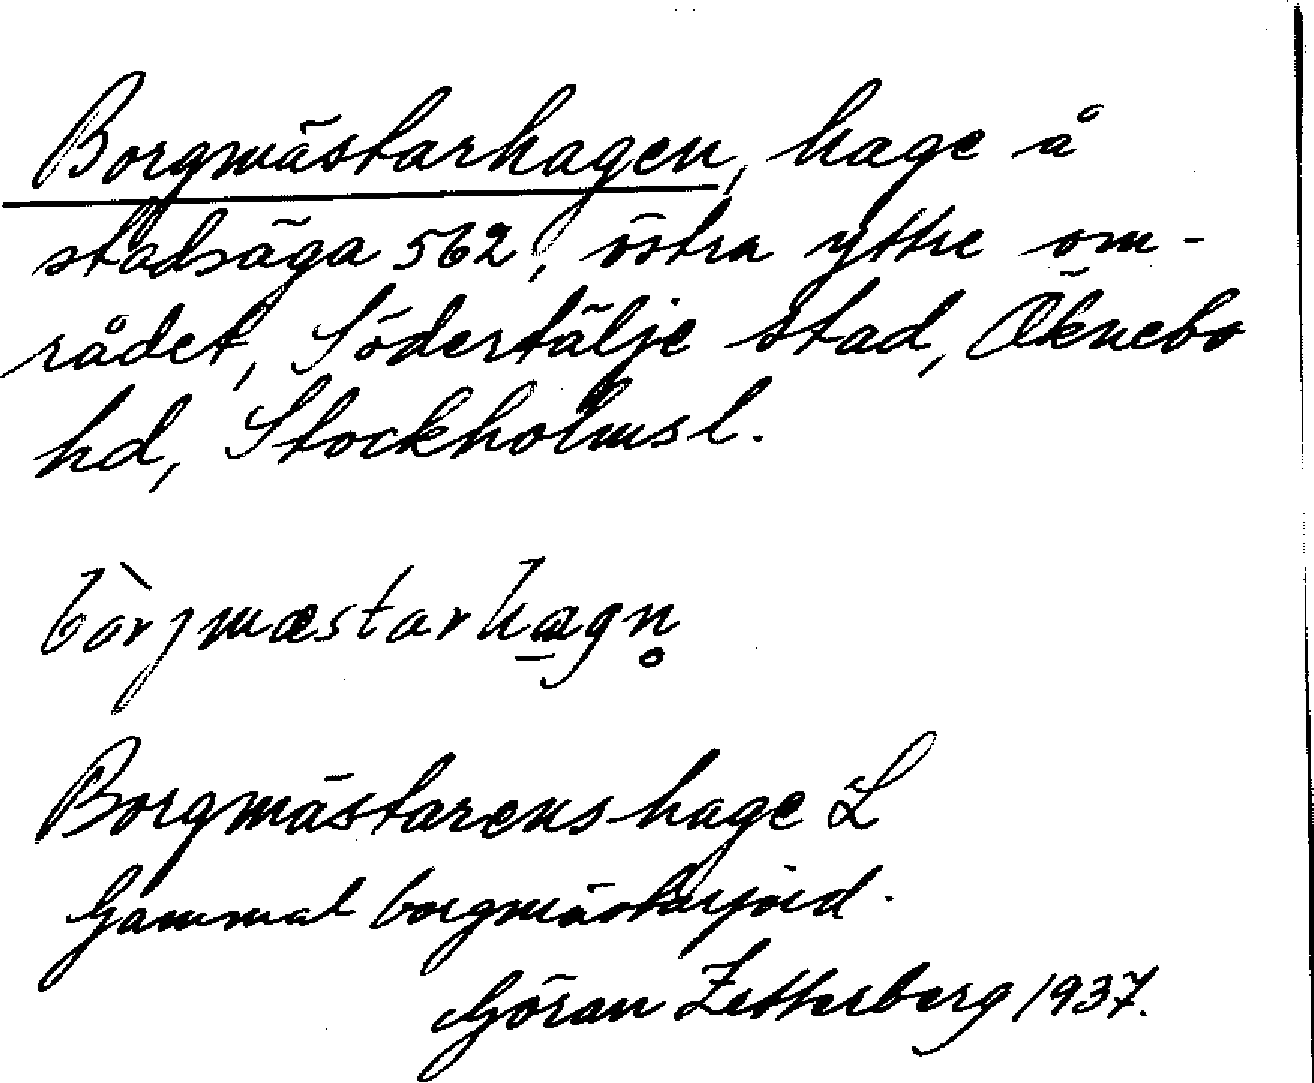 Borgmästarhagen, hage å
stadsäga 562, östra yttre om-
rådet, Södertälje stad, Öknebo
hd, Stockholms l.
bòrjmæstarhagn̥
Borgmästarens hage L
Gammal borgmästarjord.
Göran Zetterberg 1937.